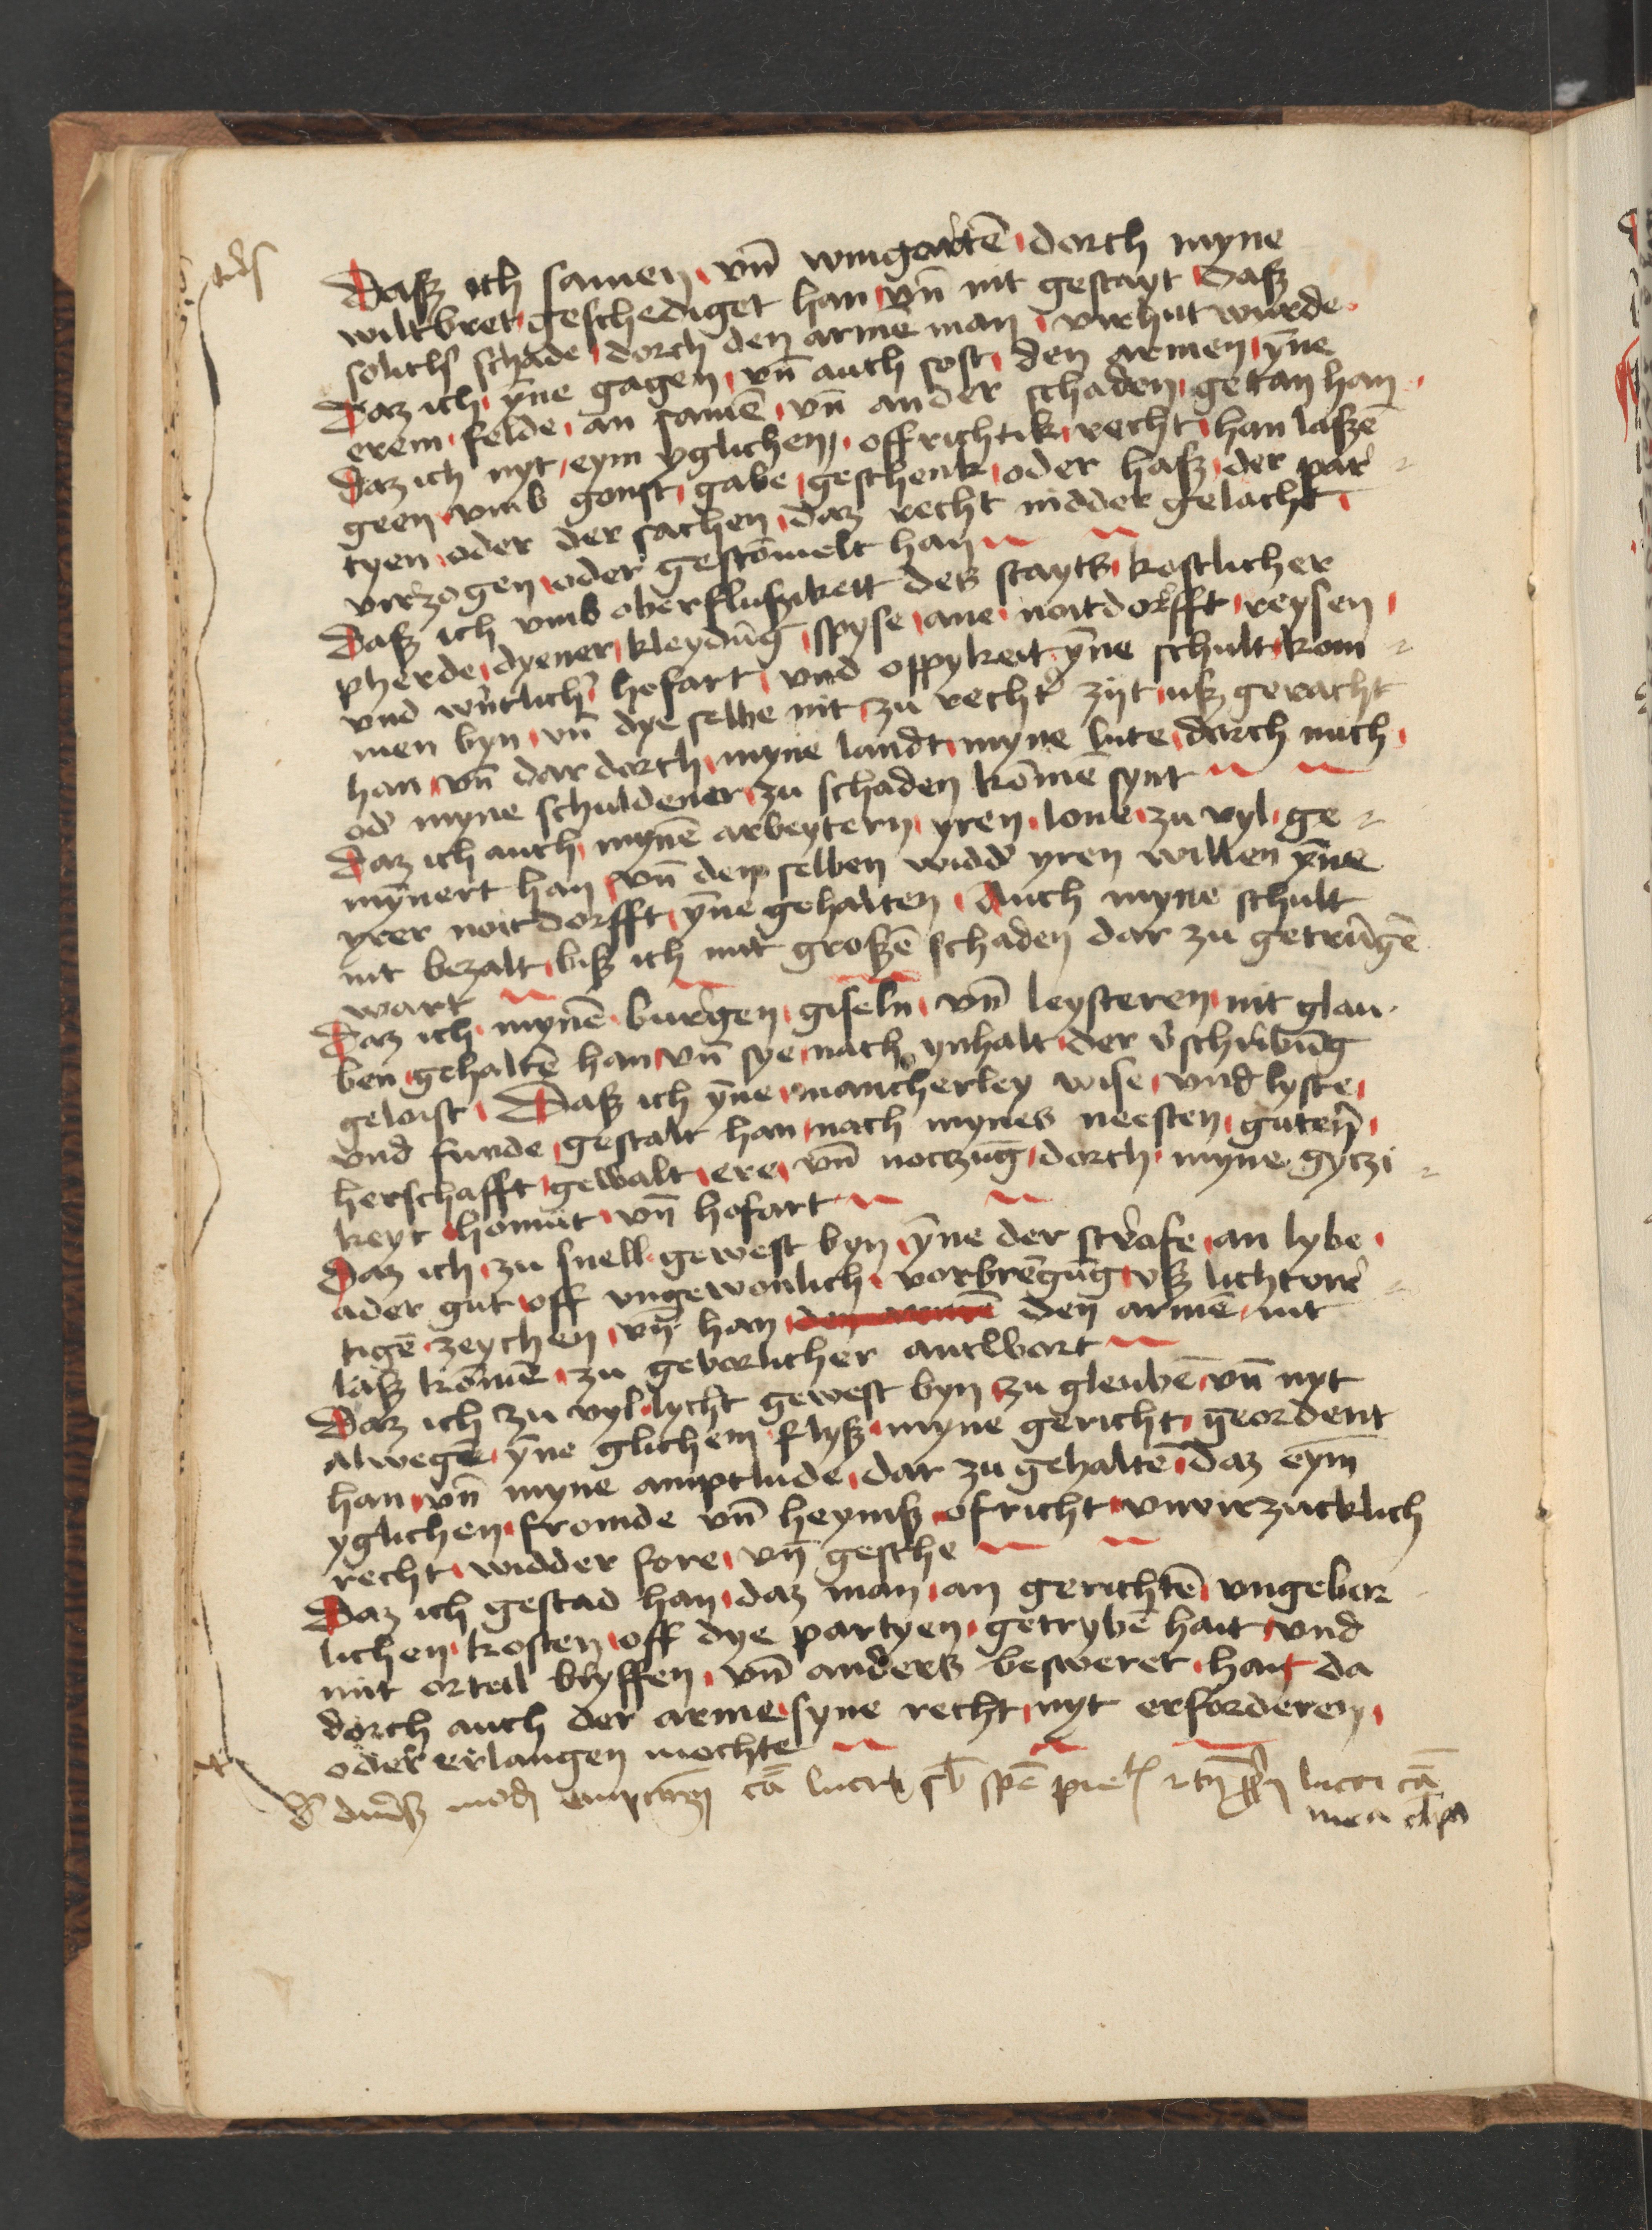 Daß ich samen vn̄ wingartē dorch myne
wiltbret geschediget han vn̄ nit gestayt daß
solichs schade dorch den armē man virhut wurde
Daz ich ȳne gagen vn̄ auch sost den armen ȳne
erem felde an samē vn̄ ander schaden getan han
Daz ich nyt eym yglichen offrichtik recht han laßē
geen vmb gonst gabe geschenk oder haß der par
tyen oder der sachen daz recht nidder gelacht
virzogen oder gestōmelt han
Daß ich vmb oberflußikeit des stayts kostlicher
pherde dyener kleydūg spyse ane noitdorfft reysen
vnd wertlich hofart vnd oppykeit ȳne schult kom
men byn vn̄ dye selbe nit zu recht zijt uß geracht
han vn̄ dar dorch myne landt myne lute dorch mich
od myne schuldener zu schaden kōmē synt
Daz ich auch mynē arbeytern yren lone zu vyl ge
mynert han vn̄ den selben widd yren willen ȳne
yrer noitdorfft ȳne gehalten Auch myne schult
nit bezalt biß ich mit großē schaden dar zu getrūgē
wart
Daz ich mynē burgen giseln vn̄ leysteren nit glau
ben gehaltē han vn̄ sye nach ynhalt der vschribūg
geloist Daß ich ȳne mancherley wise vnd lyste
vnd funde gestalt han nach mynes neesten guteren
herschafft gewalt ere vn̄ noczūg dorch myne gyczi
keyt homut vn̄ hofart
Daz ich zu snell gewest byn ȳne der strafe an lybe
ader gut off vngewonlich vorbrēgūg vß lichtver
tigē zeychen vn̄ han den armē nit
laß kōmē zu geborlicher antwort
Daz ich zu vyl lycht gewest byn zu gleubē vn̄ nyt
alwegē ȳne glichem flyß myne gericht geordent
han vn̄ myne amptlude dar zu gehaltē daz eym
yglichen fromde vn̄ heymß ofricht vnvirzucklich
recht widder fore vn̄ gesche
Daz ich gestad han daz man an gerichtē vngebor
lichen kosten off dye partyen getrybē hait vnd
mit orteil klyffen vn̄ anders besweret hait da
dorch auch der arme syne recht nyt erforderen
oder erlangen mochte
lucri cā
mea clpa